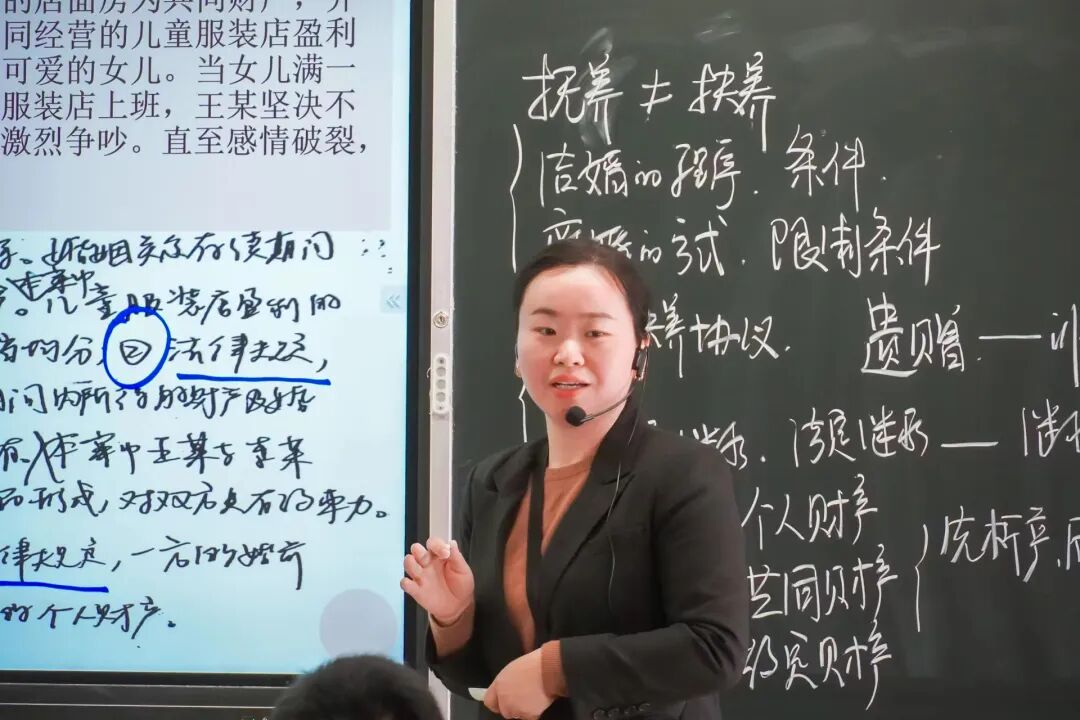 的店面房为共同财产，并
同经营的儿童服装店盈利
可爱的女儿。当女儿满一
服装店上班，王某坚决不
激烈争吵。直至感情破裂，
婚姻关系存续期间
本案中
。儿童服装店盈利的
均分，② 法律规定，
间内所得的财产及婚
本案中王某与李某
形成，对双方具有约束力。
律规定，一方的婚前
的个人财产。
抚养≠扶养
结婚的程序．条件．
离婚的方式．限制条件
扶养协议． 遗赠．——
法定继承——继承
个人财产
共同财产
约定财产
先析产，